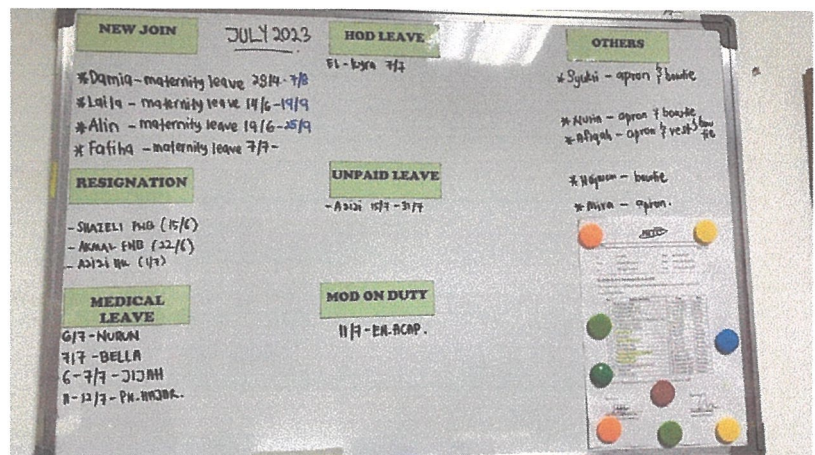 NEW JOIN
JULY 2023
*Damia - maternity leave 28/4 - 7/8
*Laila - maternity leave 14/6 - 19/9
*Alin - maternity leave 19/6 - 25/9
*Fatiha - maternity leave 7/7 -
RESIGNATION
- SHAZELI FNB (15/6)
- AKMAL FNB (22/6)
- AZIZI HK (1/7)
MEDICAL
LEAVE
6/7 - NURUN
7/7 - BELLA
6 - 7/7 - JIJAH
11 - 12/7 - PN. HAJAR.
HOD LEAVE
7/7
UNPAID LEAVE
- AZIZI 15/7 - 31/7
MOD ON DUTY
11/7 - EN. ACAP.
OTHERS
*Syukri - apron & bowtie
*Nurin - apron & bowtie
*Afiqah - apron & vest & bow
tie
- bowtie
*Mira - apron.